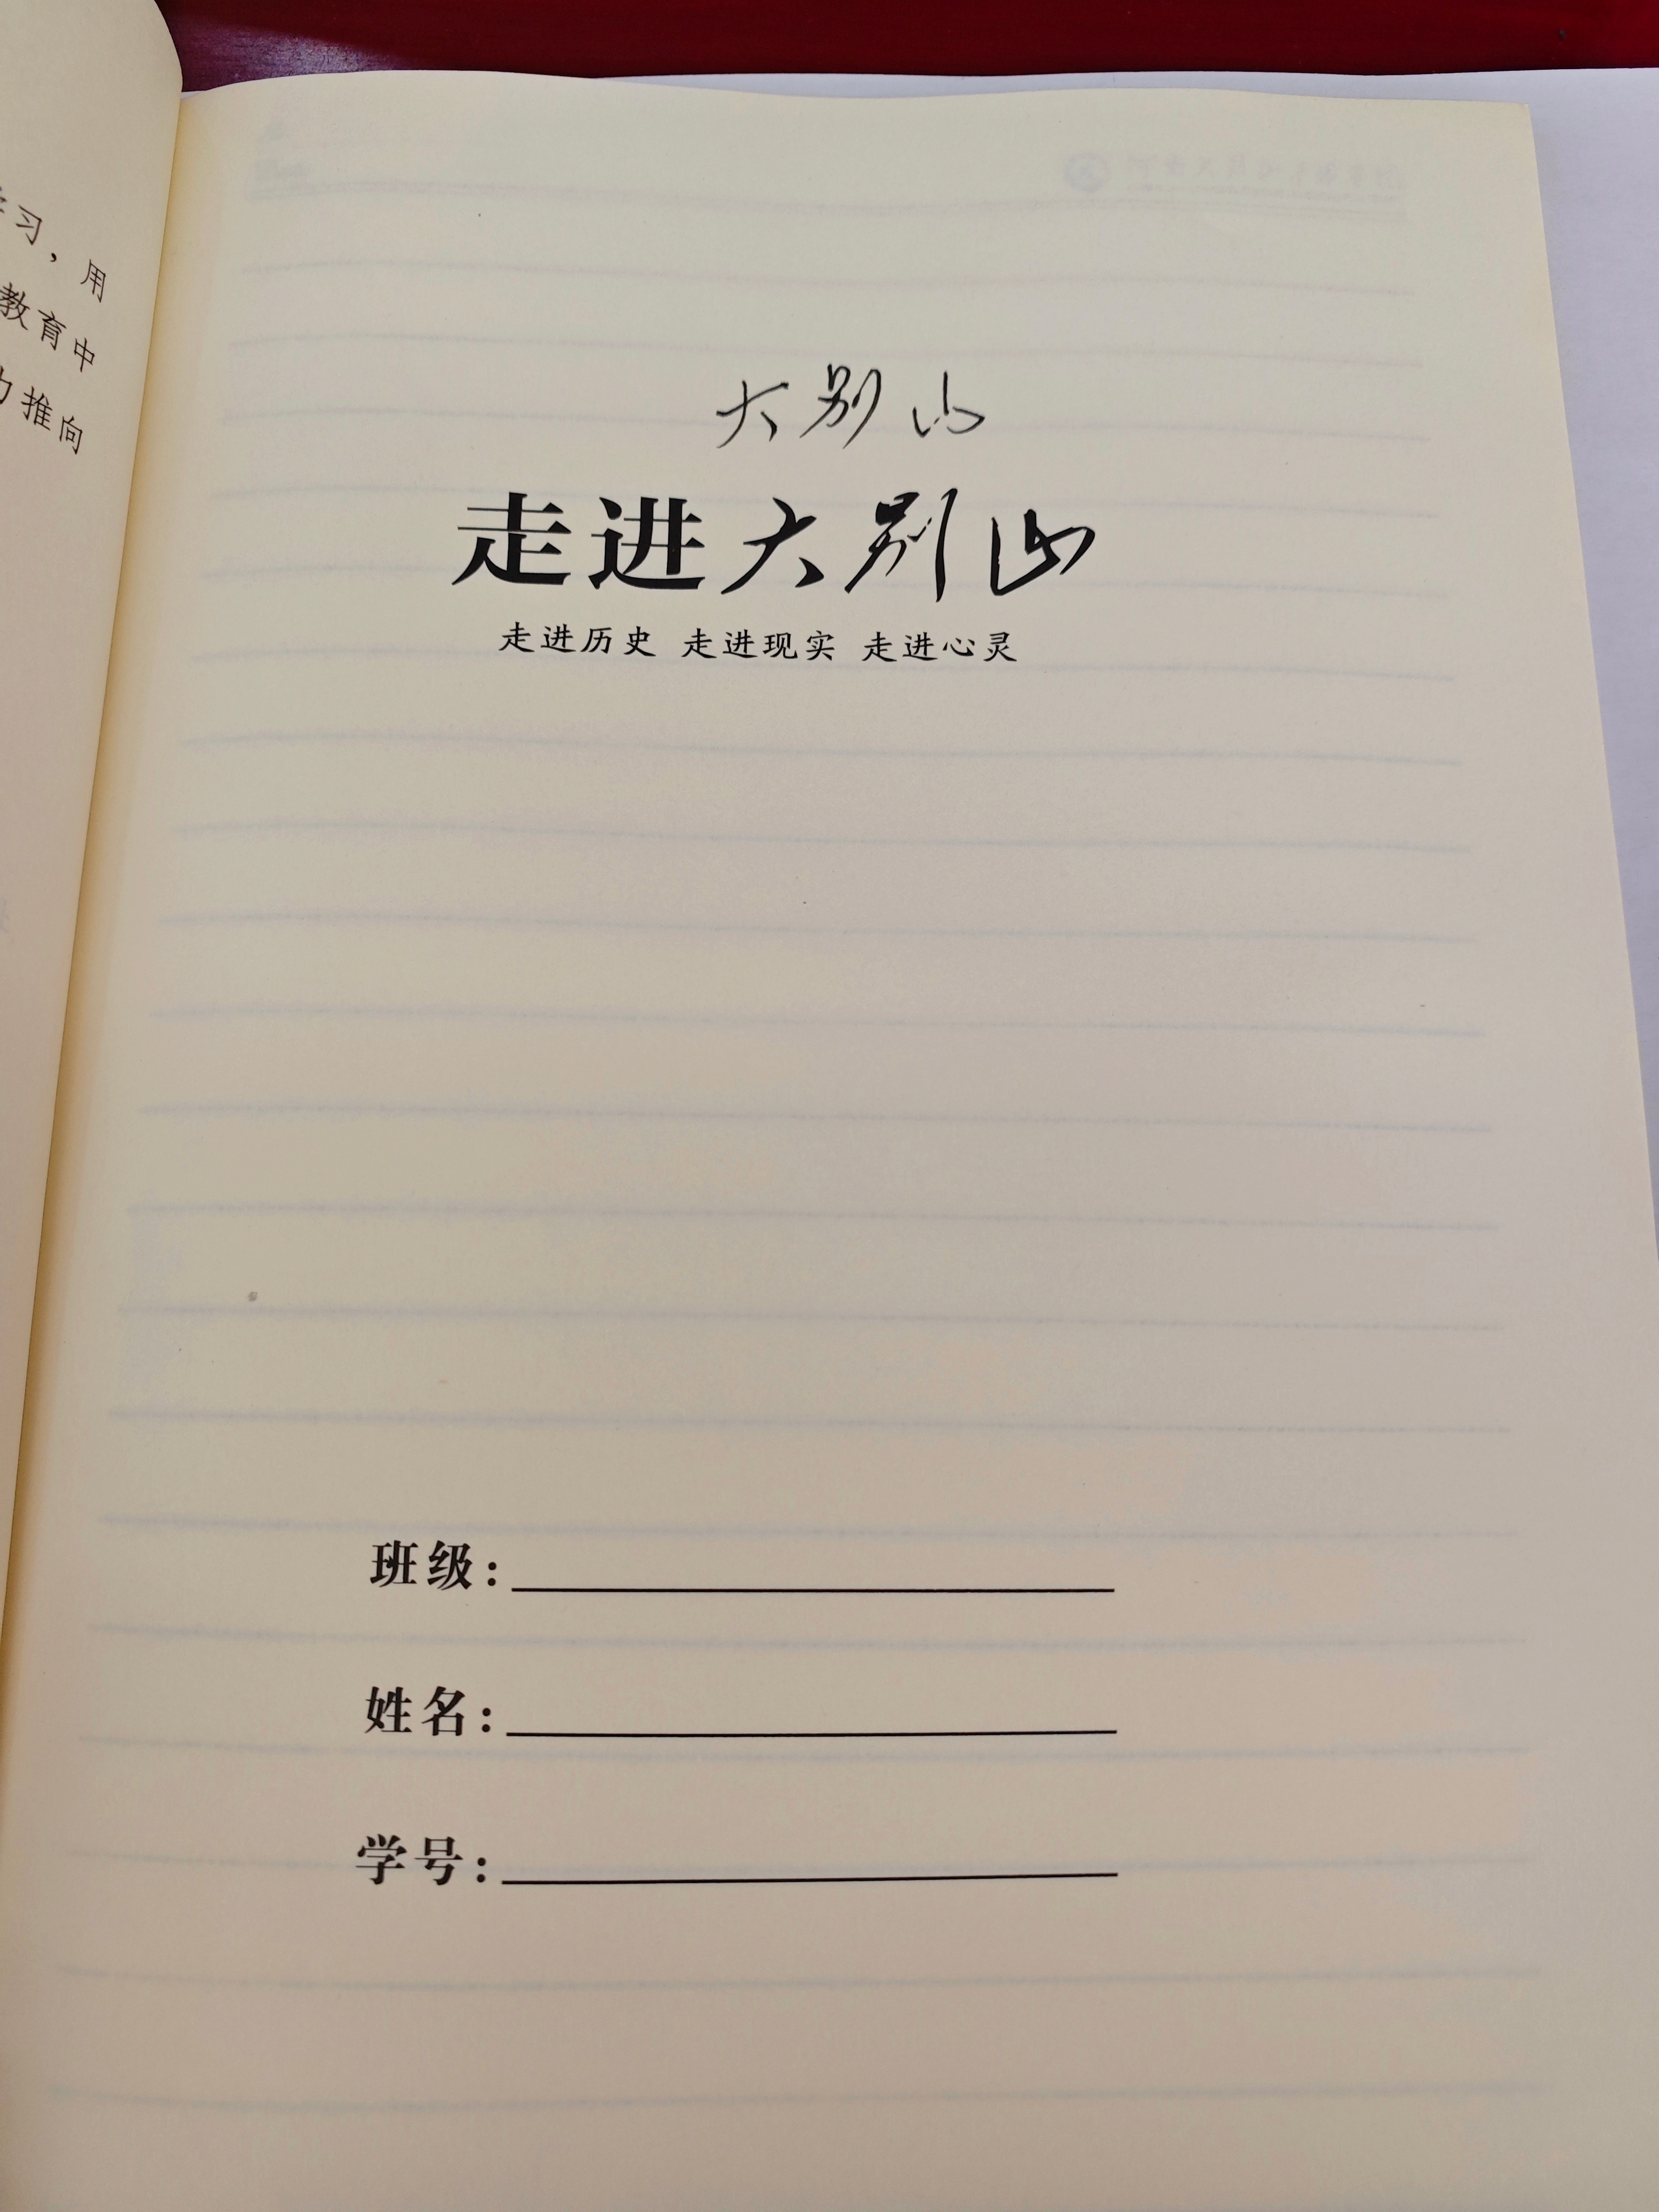 习，用
教育中
推向
大别山
走进大别山
走进历史 走进现实 走进心灵
班级：
姓名：
学号：